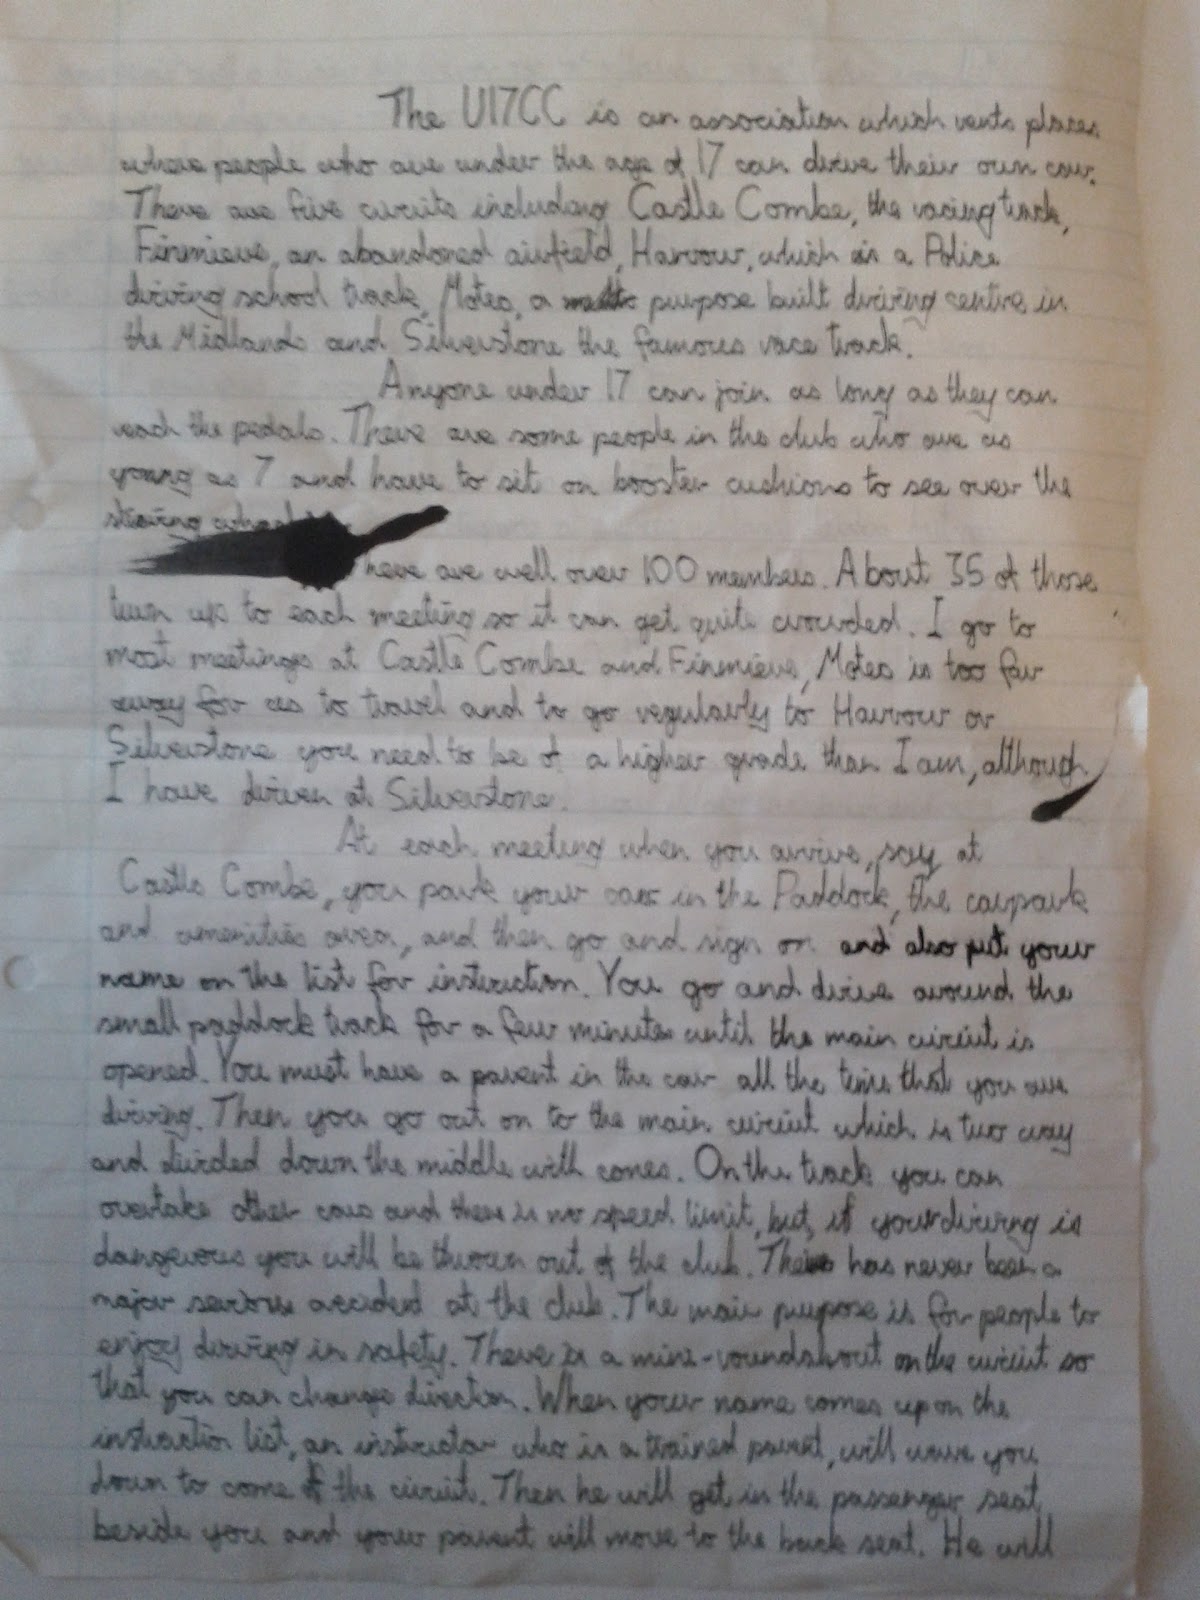 The U17CC is an association which rents places
where people who are under the age of 17 can drive their own car.
There are five circuits including Castle Combe, the racing track,
Finmiere, an abandoned airfield, Harrow, which is a Police
driving school track, Motec, a purpose built driving centre in
the Midlands and Silverstone the famous race track.
Anyone under 17 can join as long as they can
reach the pedals. There are some people in the club who are as
young as 7 and have to sit on booster cushions to see over the
There are well over 100 members. About 35 of those
turn up to each meeting so it can get quite crowded. I go to
most meetings at Castle Combe and Finmiere, Motec is too far
away for us to travel and to go regularly to Harrow or
Silverstone you need to be of a higher grade than I am, although
I have driven at Silverstone.
At each meeting when you arrive, say at
Castle Combe, you park your car in the Paddock, the carpark
and amenities area, and then go and sign on and also put your
name on the list for instruction. You go and drive around the
small paddock track for a few minutes until the main circuit is
opened. You must have a parent in the car all the time that you are
driving. Then you go out on to the main circuit which is two way
and divided down the middle with cones. On the track you can
overtake other cars and there is no speed limit, but, if your driving is
dangerous you will be thrown out of the club. There has never been a
major serious accident at the club. The main purpose is for people to
enjoy driving in safety. There is a mini-roundabout on the circuit so
that you can change direction. When your name comes up on the
instruction list, an instructor who is a trained parent, will wave you
down to come off the circuit. Then he will get in the passenger seat
beside you and your parent will move to the back seat. He will